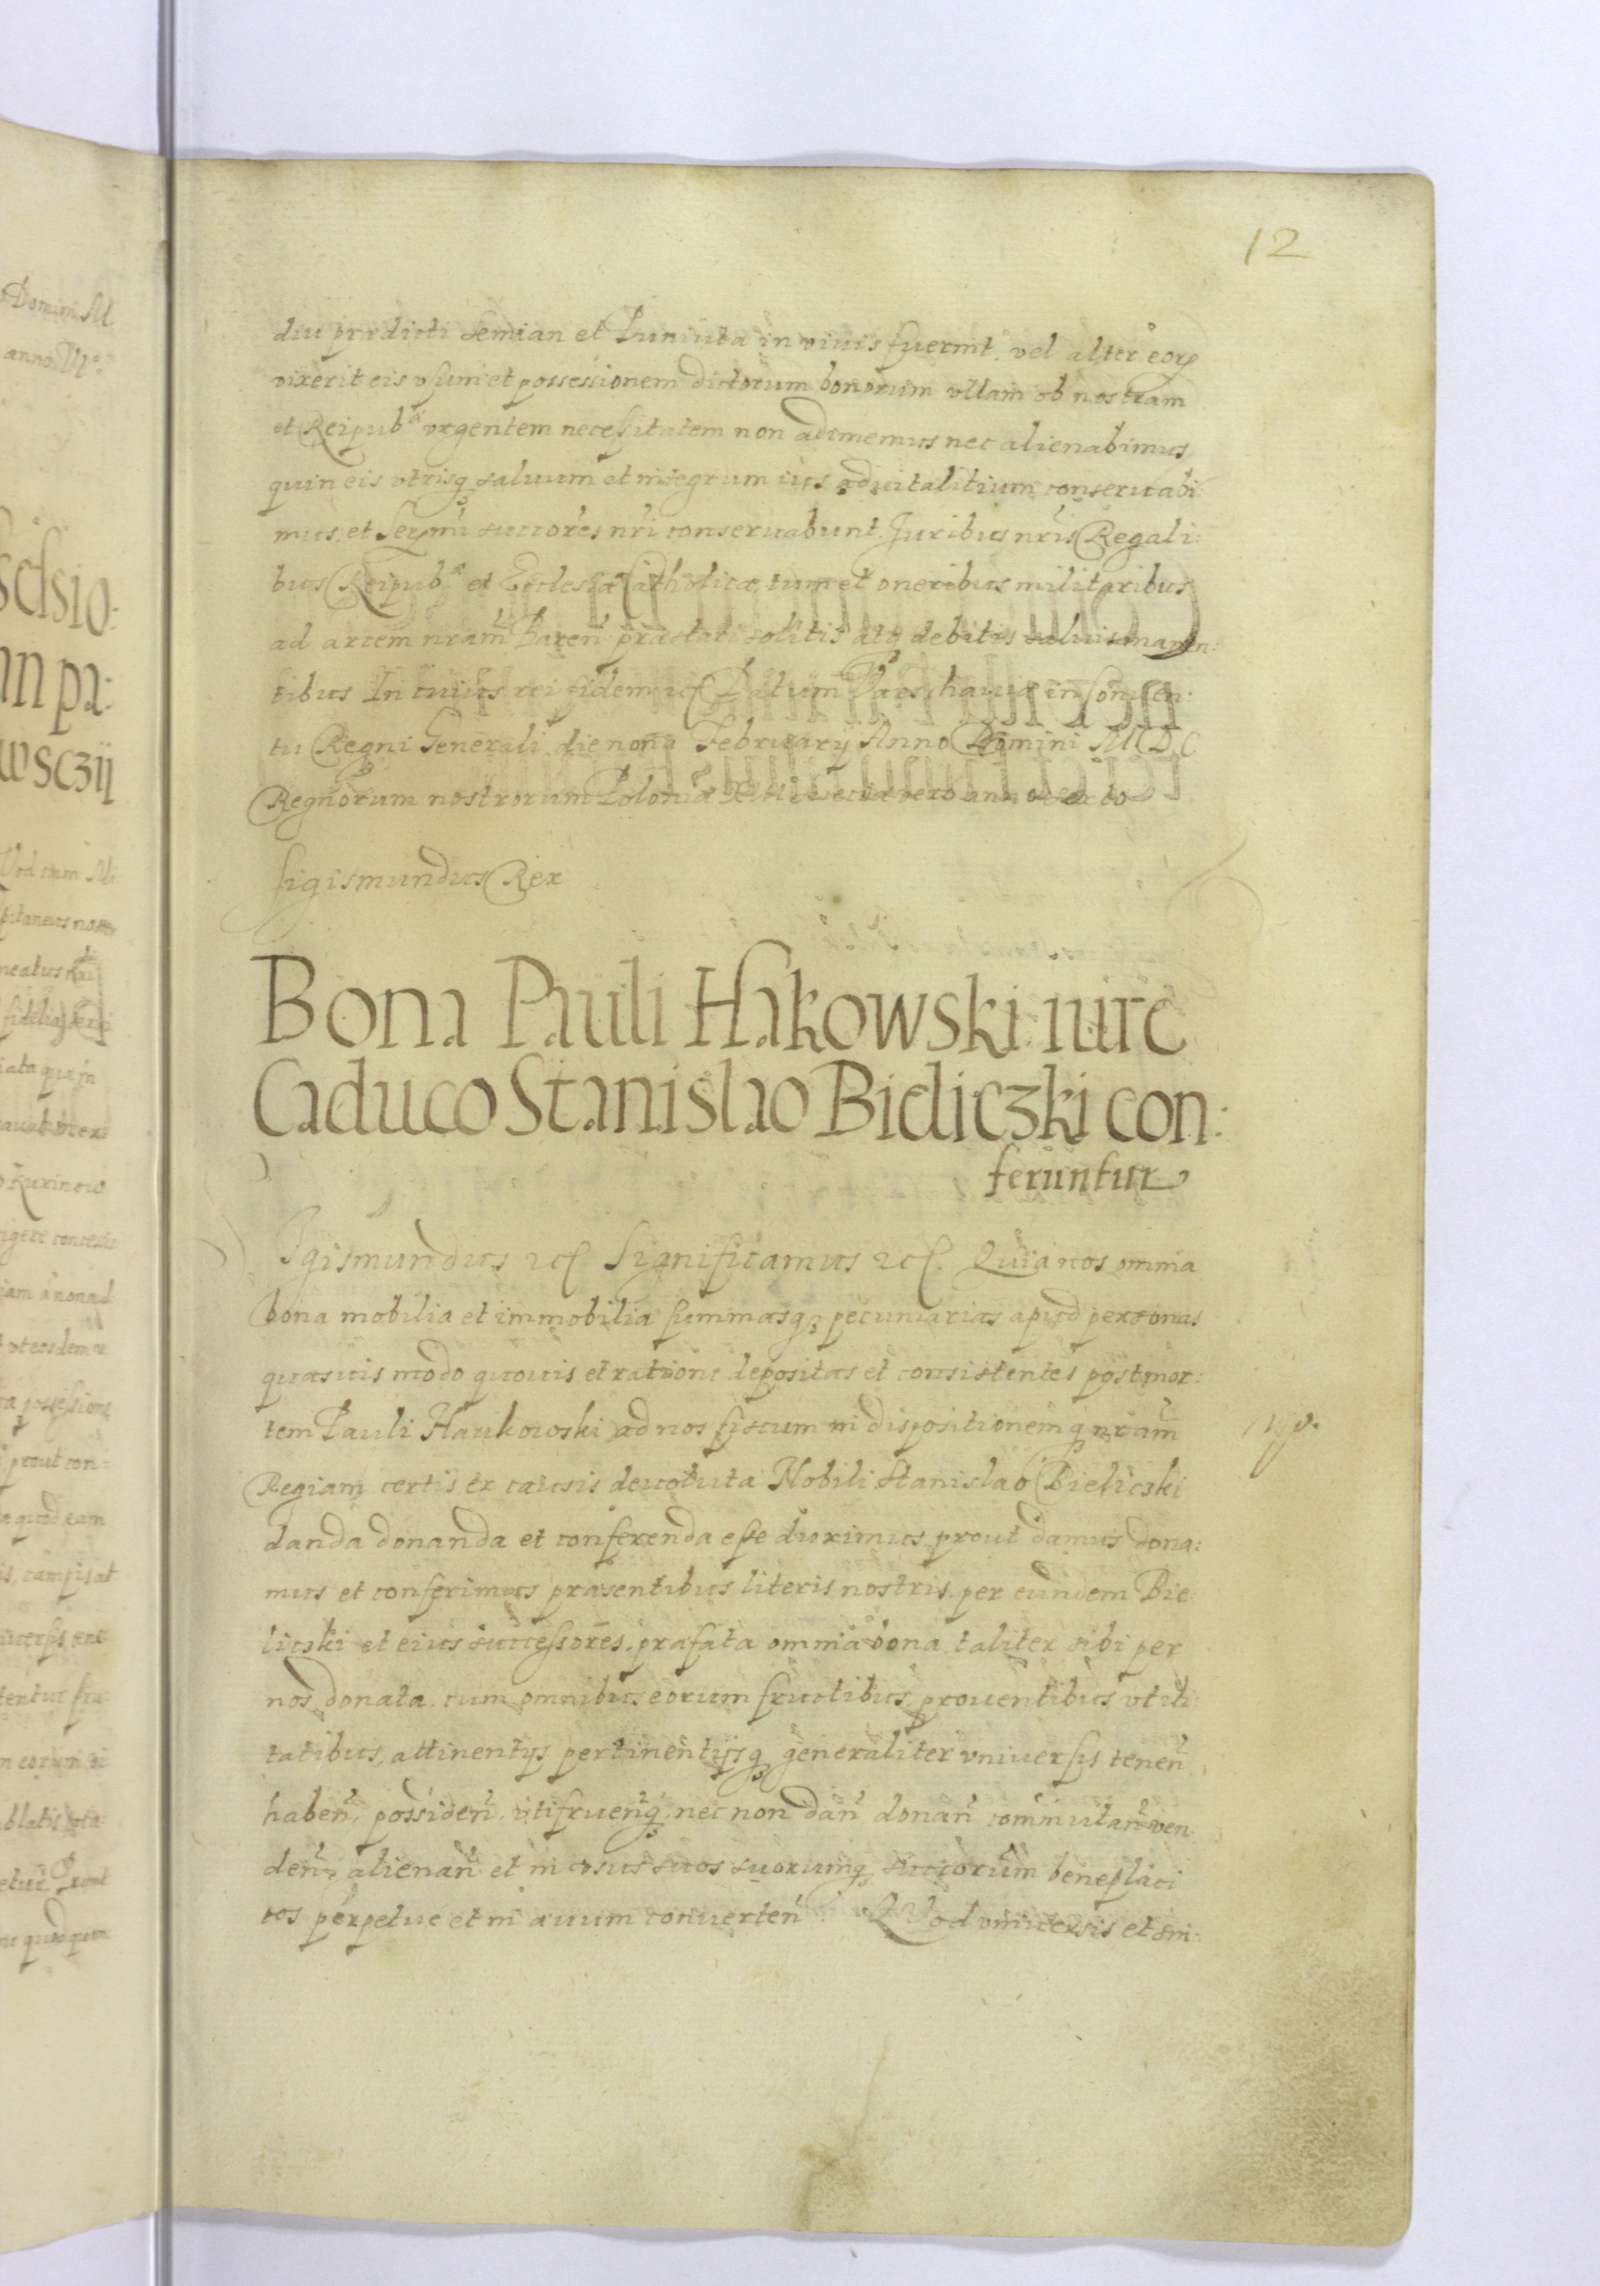 12
diu prædicti Semian et Puniuta in viuis fuerint. vel alter eorꝫ
vixerit eis vsum et possessionem dictorum bonorum vllam ob nostram
et Reipubcæ vrgentem necessitatem non adimemus nec alienabimus
quin eis vtrisqꝫ saluum et integrum ius aduitalitium conseruabi:
mus, et Serꝫmi succores nri conseruabunt. Juribus nris Regali:
bus Reipubcæ et Ecclesiæ Catholicæ, tum et oneribus militaribus
ad arcem nram præstari solitis atqꝫ debitis saluis manen:
tibus In cuius rei fidem etc Datum Varschauiæ in Conuen:
tu Regni Generali die nona February Anno Domini MDC
Regnorum nostrorum Poloniæ vero anno
Sigismundus Rex
Bona Pauli Hakowski iure
Caduco Stanislao Bieliczki con:
feruntur
Sigismundus etc Significamus etc. Quia nos omnia
bona mobilia et immobilia summasqꝫ pecuniarias apud personas
quasuis modo quouis et ratione depositas et consistentes post mor:
tem Pauli Haukowski ad nos fiscum in dispositionemqꝫ nram
Regiam certis ex causis deuoluta Nobili Stanislao Bieliczki
danda donanda et conferenda esse duximus prout damus dona:
mus et conferimus præsentibus literis nostris. per eundem Bie
liczki et eius successores. præfata omnia bona taliter sibi per
nos donata cum omnibus eorum fructibus prouentibus vtili:
tatibus, attinentijs pertinentijsqꝫ generaliter vniuersis tenen
haben, possiden, vtifruenqꝫ, nec non dan donan commutan ven
den, alienan et in vsus suos suorumqꝫ succorum beneplaci
tos perpetue et in æuum conuerten QVod vniuersis et sin: